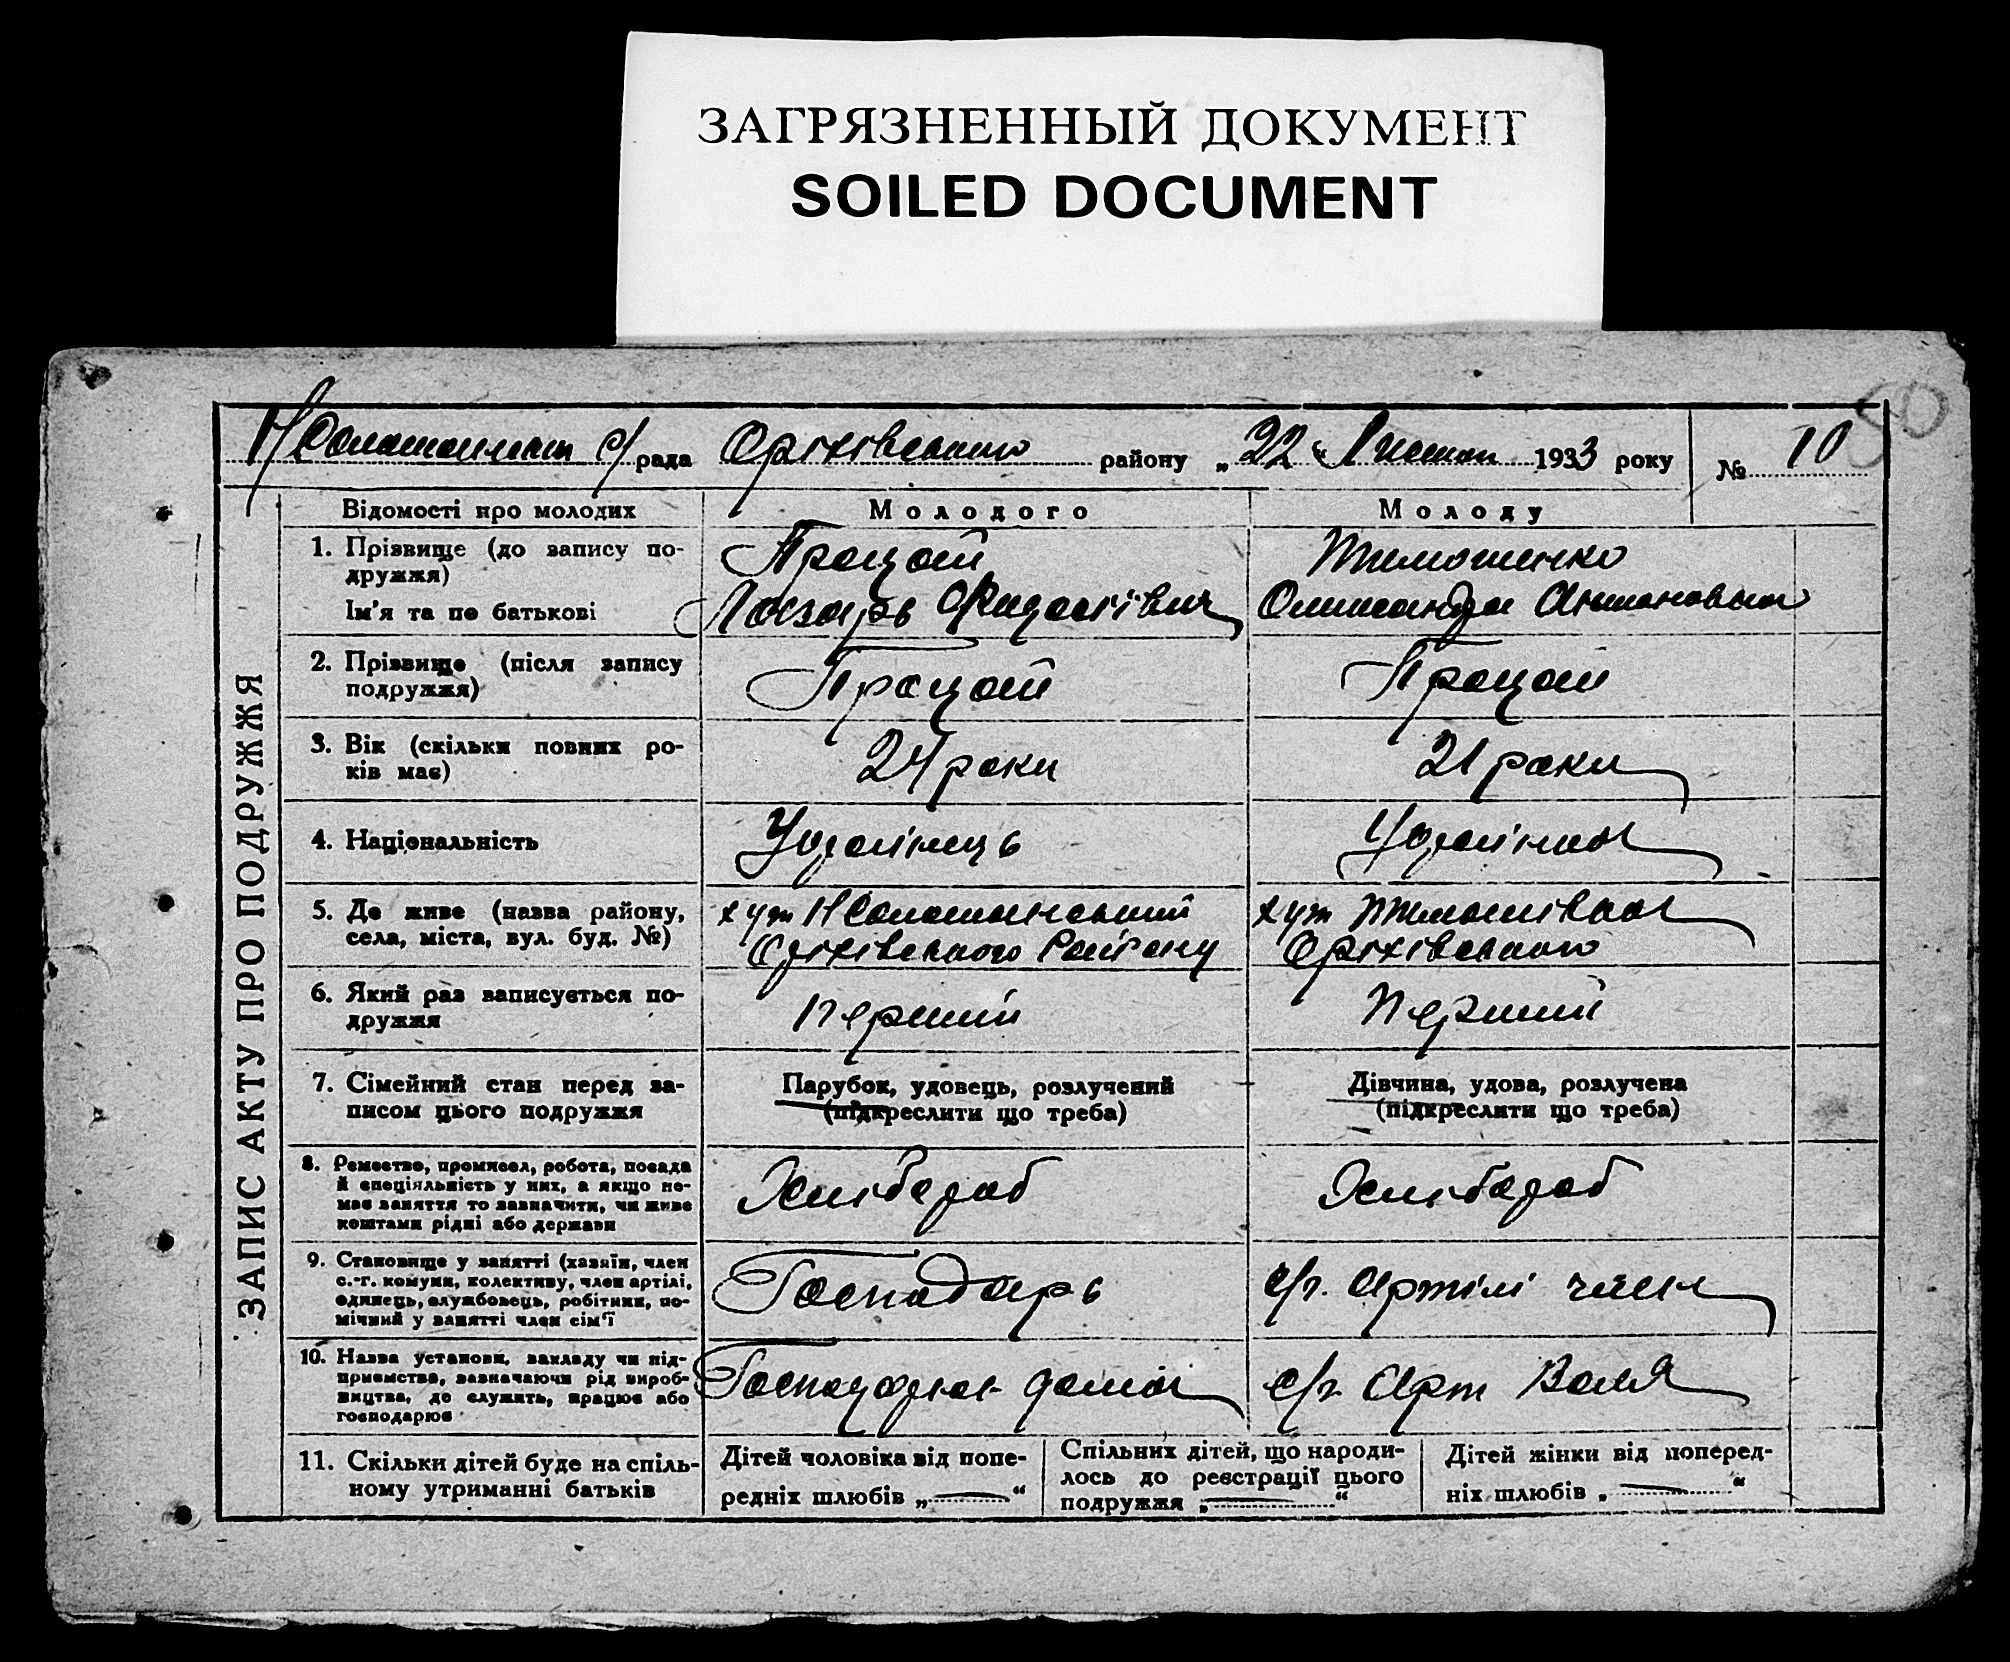 ЗАГРЯЗНЕННЫЙ ДОКУМЕНТ
SOILED DOCUMENT
с/рада Оріхівського району „22“ 1933 року № 10
ЗАПИС АКТУ ПРО ПОДРУЖЖЯ
Відомості про молодих Молодого Молоду
1. Прізвище (до запису по-
дружжя) Процай Тимошенко
Ім'я та по батькові Лазарь Олександра Антоновна
2. Прізвище (після запису
подружжя) Процай Процай
3. Вік (скільки повних ро-
ків має) 24 роки 21 роки
4. Національність Українець Українка
5. Де живе (назва району, хут хут
села, міста, вул. буд. №) Оріхівського Району Оріхівського
6. Який раз записується по-
дружжя перший перший
7. Сімейний стан перед за- Парубок, удовець, розлучений Дівчина, удова, розлучена
писом цього подружжя (підкреслити що треба) (підкреслити що треба)
8. Ремество, промисел, робота, посада
й спеціяльність у них, а якщо не-
має заняття то зазначити, чи живе
коштами рідні або держави Хлібороб Хлібороб
9. Становище у занятті (хазяїн, член
с.-г. комуни, колективу, член артілі,
одинець, службовець, робітник, по-
мічний у занятті член сім'ї Господарь с/г. артілі член
10. Назва установи, закладу чи під-
приємства, зазначаючи рід вироб-
ництва, де служить, працює або
господарює дома с/г. Арт Воля
11. Скільки дітей буде на спіль-
ному утриманні батьків
Дітей чоловіка від попе-
редніх шлюбів „—“
Спільних дітей, що народи-
лось до реєстрації цього
подружжя „—“
Дітей жінки від поперед-
ніх шлюбів „—“